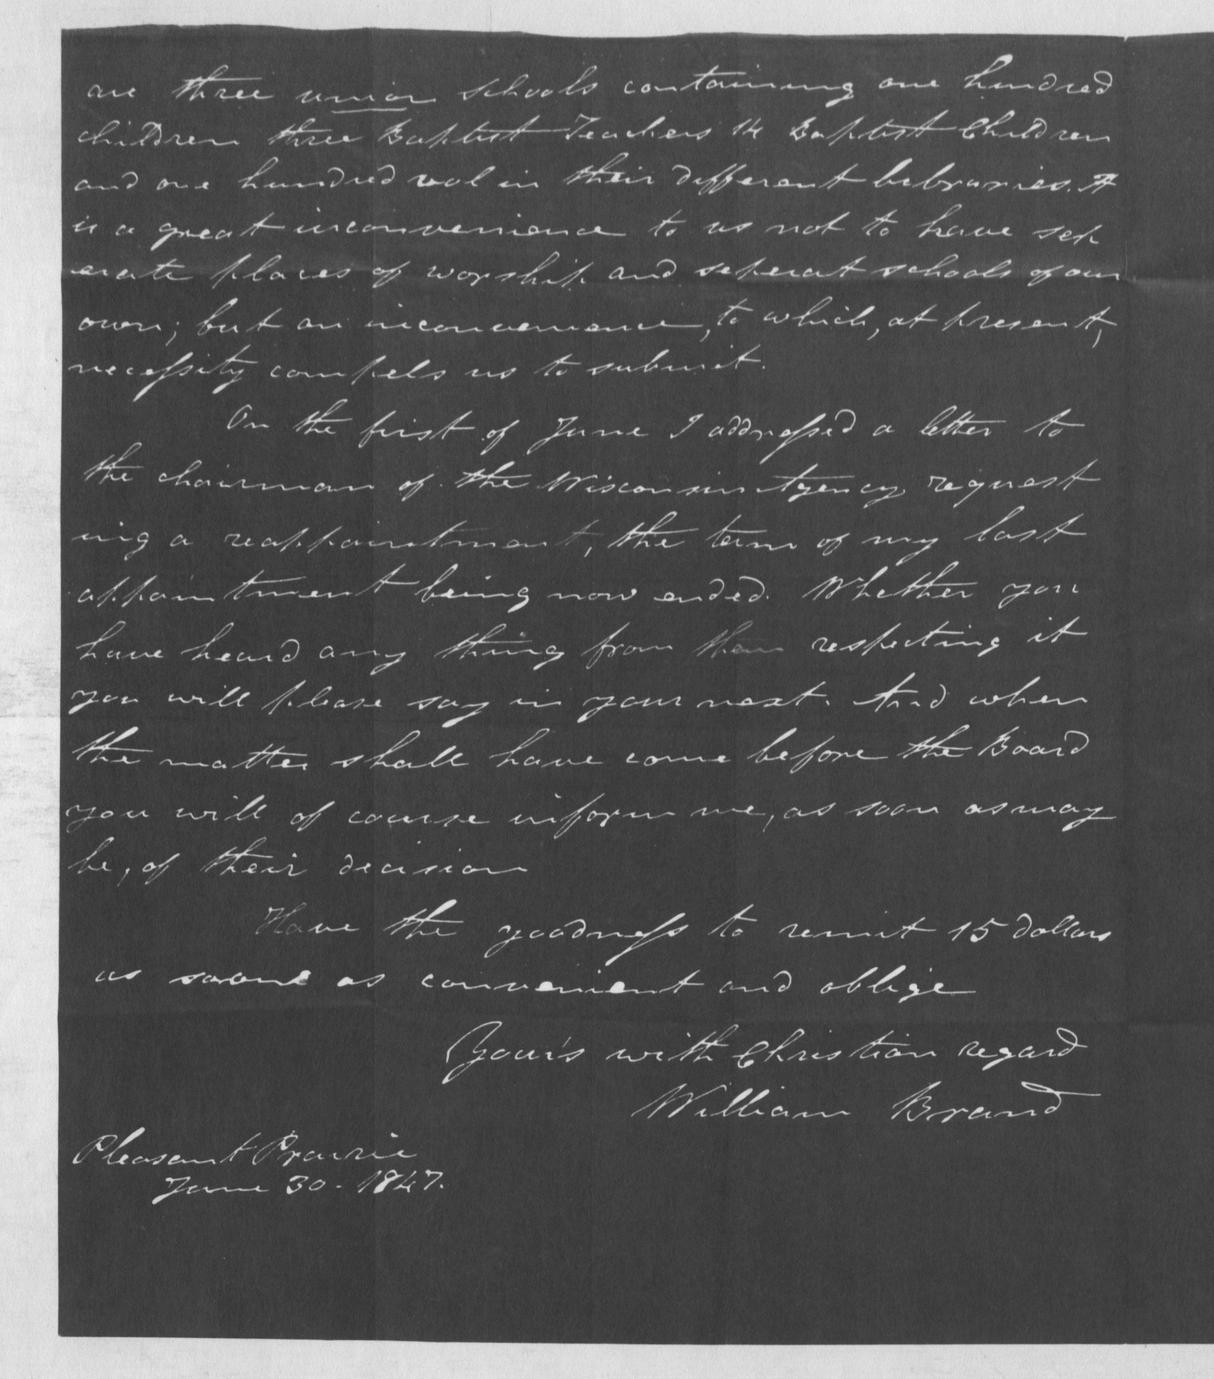 are three union schools containing one hundred
children three Baptist Teachers 14 Baptist Children
and one hundred vol in their different libraries. It
is a great inconvenience to us not to have sep
erate places of worship and seperat schools of our
own; but an inconvenience, to which, at present,
necessity compels us to submit.
On the first of June I addressed a letter to
the chairman of the Wisconsin Agency request
ing a reappointment, the term of my last
appointment being now ended. Whether you
have heard any thing from them respecting it
you will please say in your next. And when
the matter shall have come before the Board
you will of course inform me, as soon as may
be, of their decision
Have the goodness to remit 15 dollars
as soone as convenient and oblige
Your's with Christian regard
William Brand
Pleasant Prairie
June 30 - 1847.